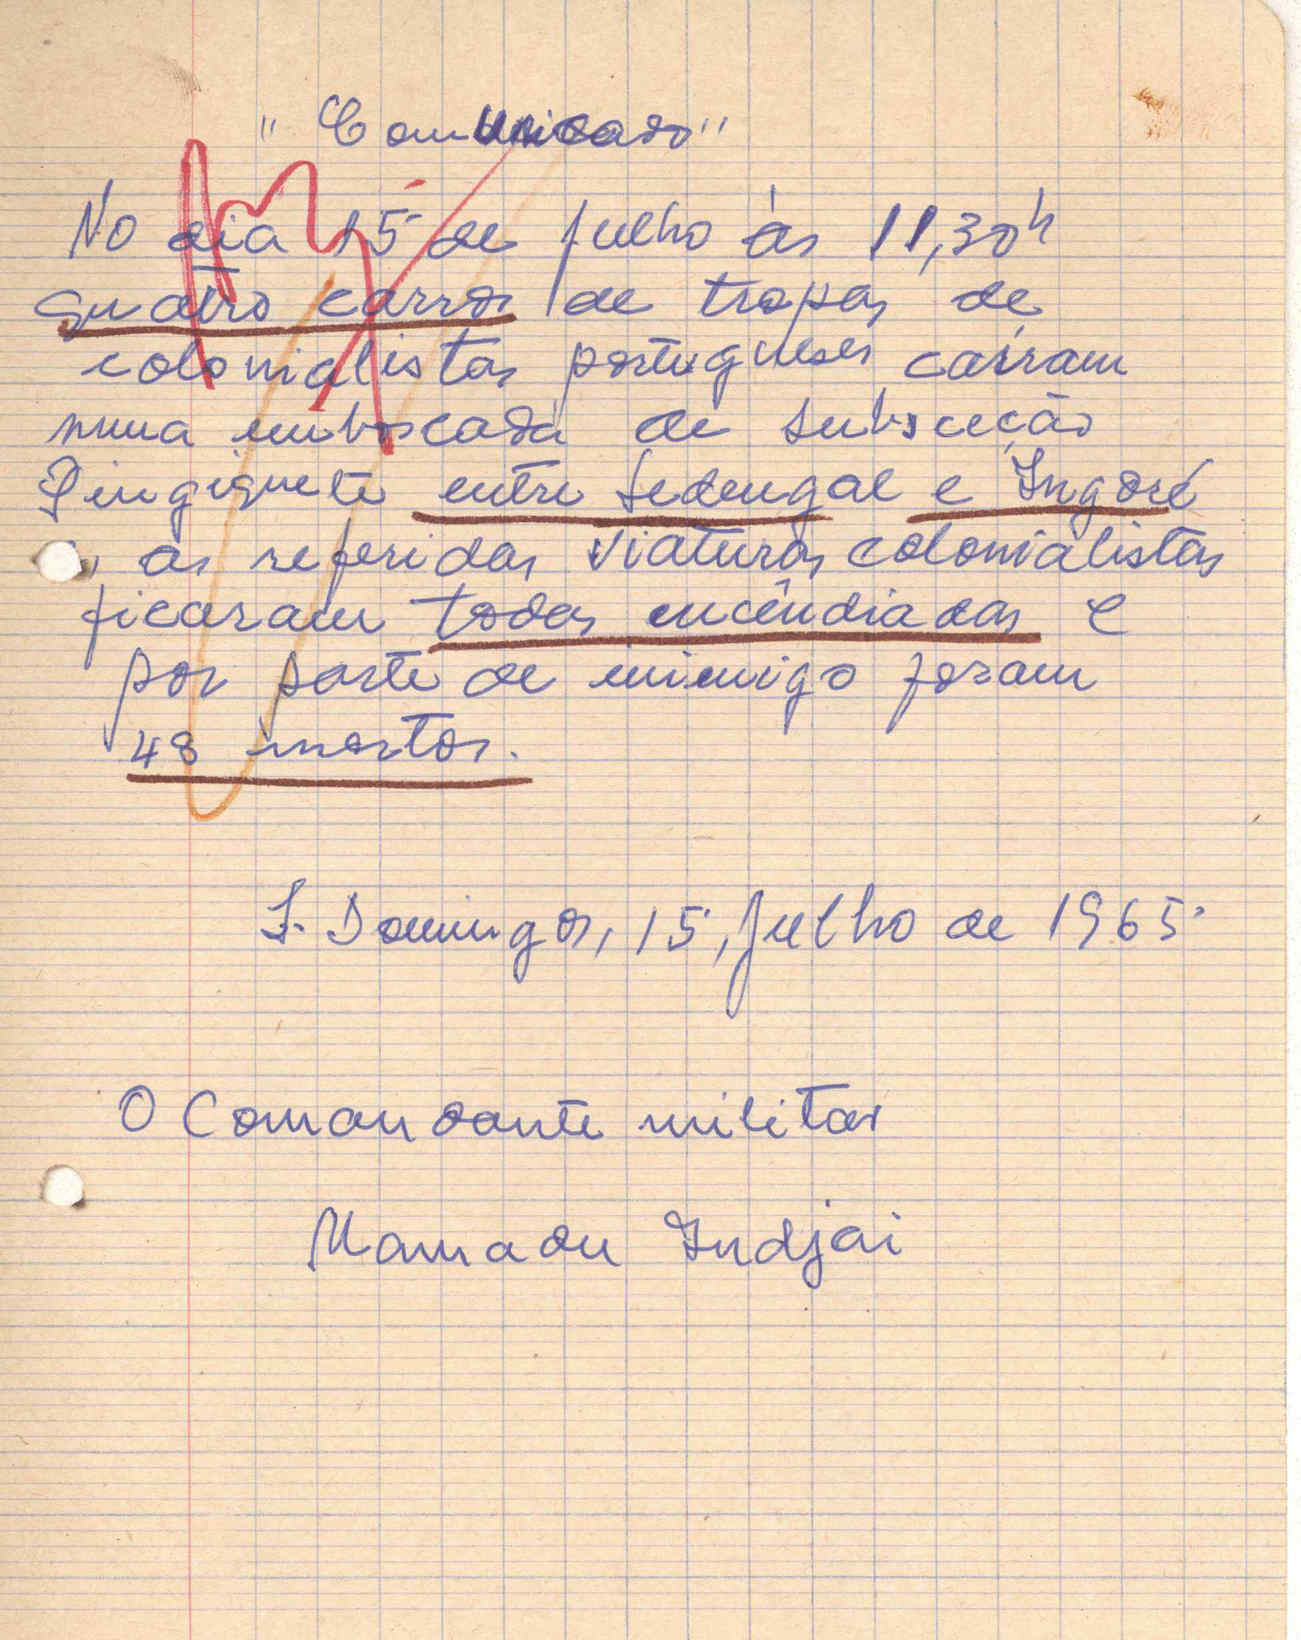 "Comunicado"
No dia 15 de Julho às 11,30h
quatro carros de tropas de
colonialistas portugueses caíram
numa emboscada de subsecção
entre Sedengal e Ingoré
, as referidas viaturas colonialistas
ficaram todas encêndiadas e
por parte de inimigo foram
48 mortos.
S. Domingos, 15, Julho de 1965
O Comandante militar
Mamadu Indjai